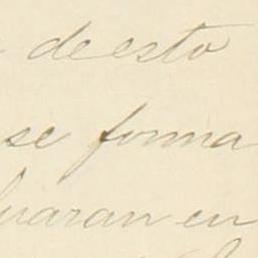 de esto
se forma
uaran en